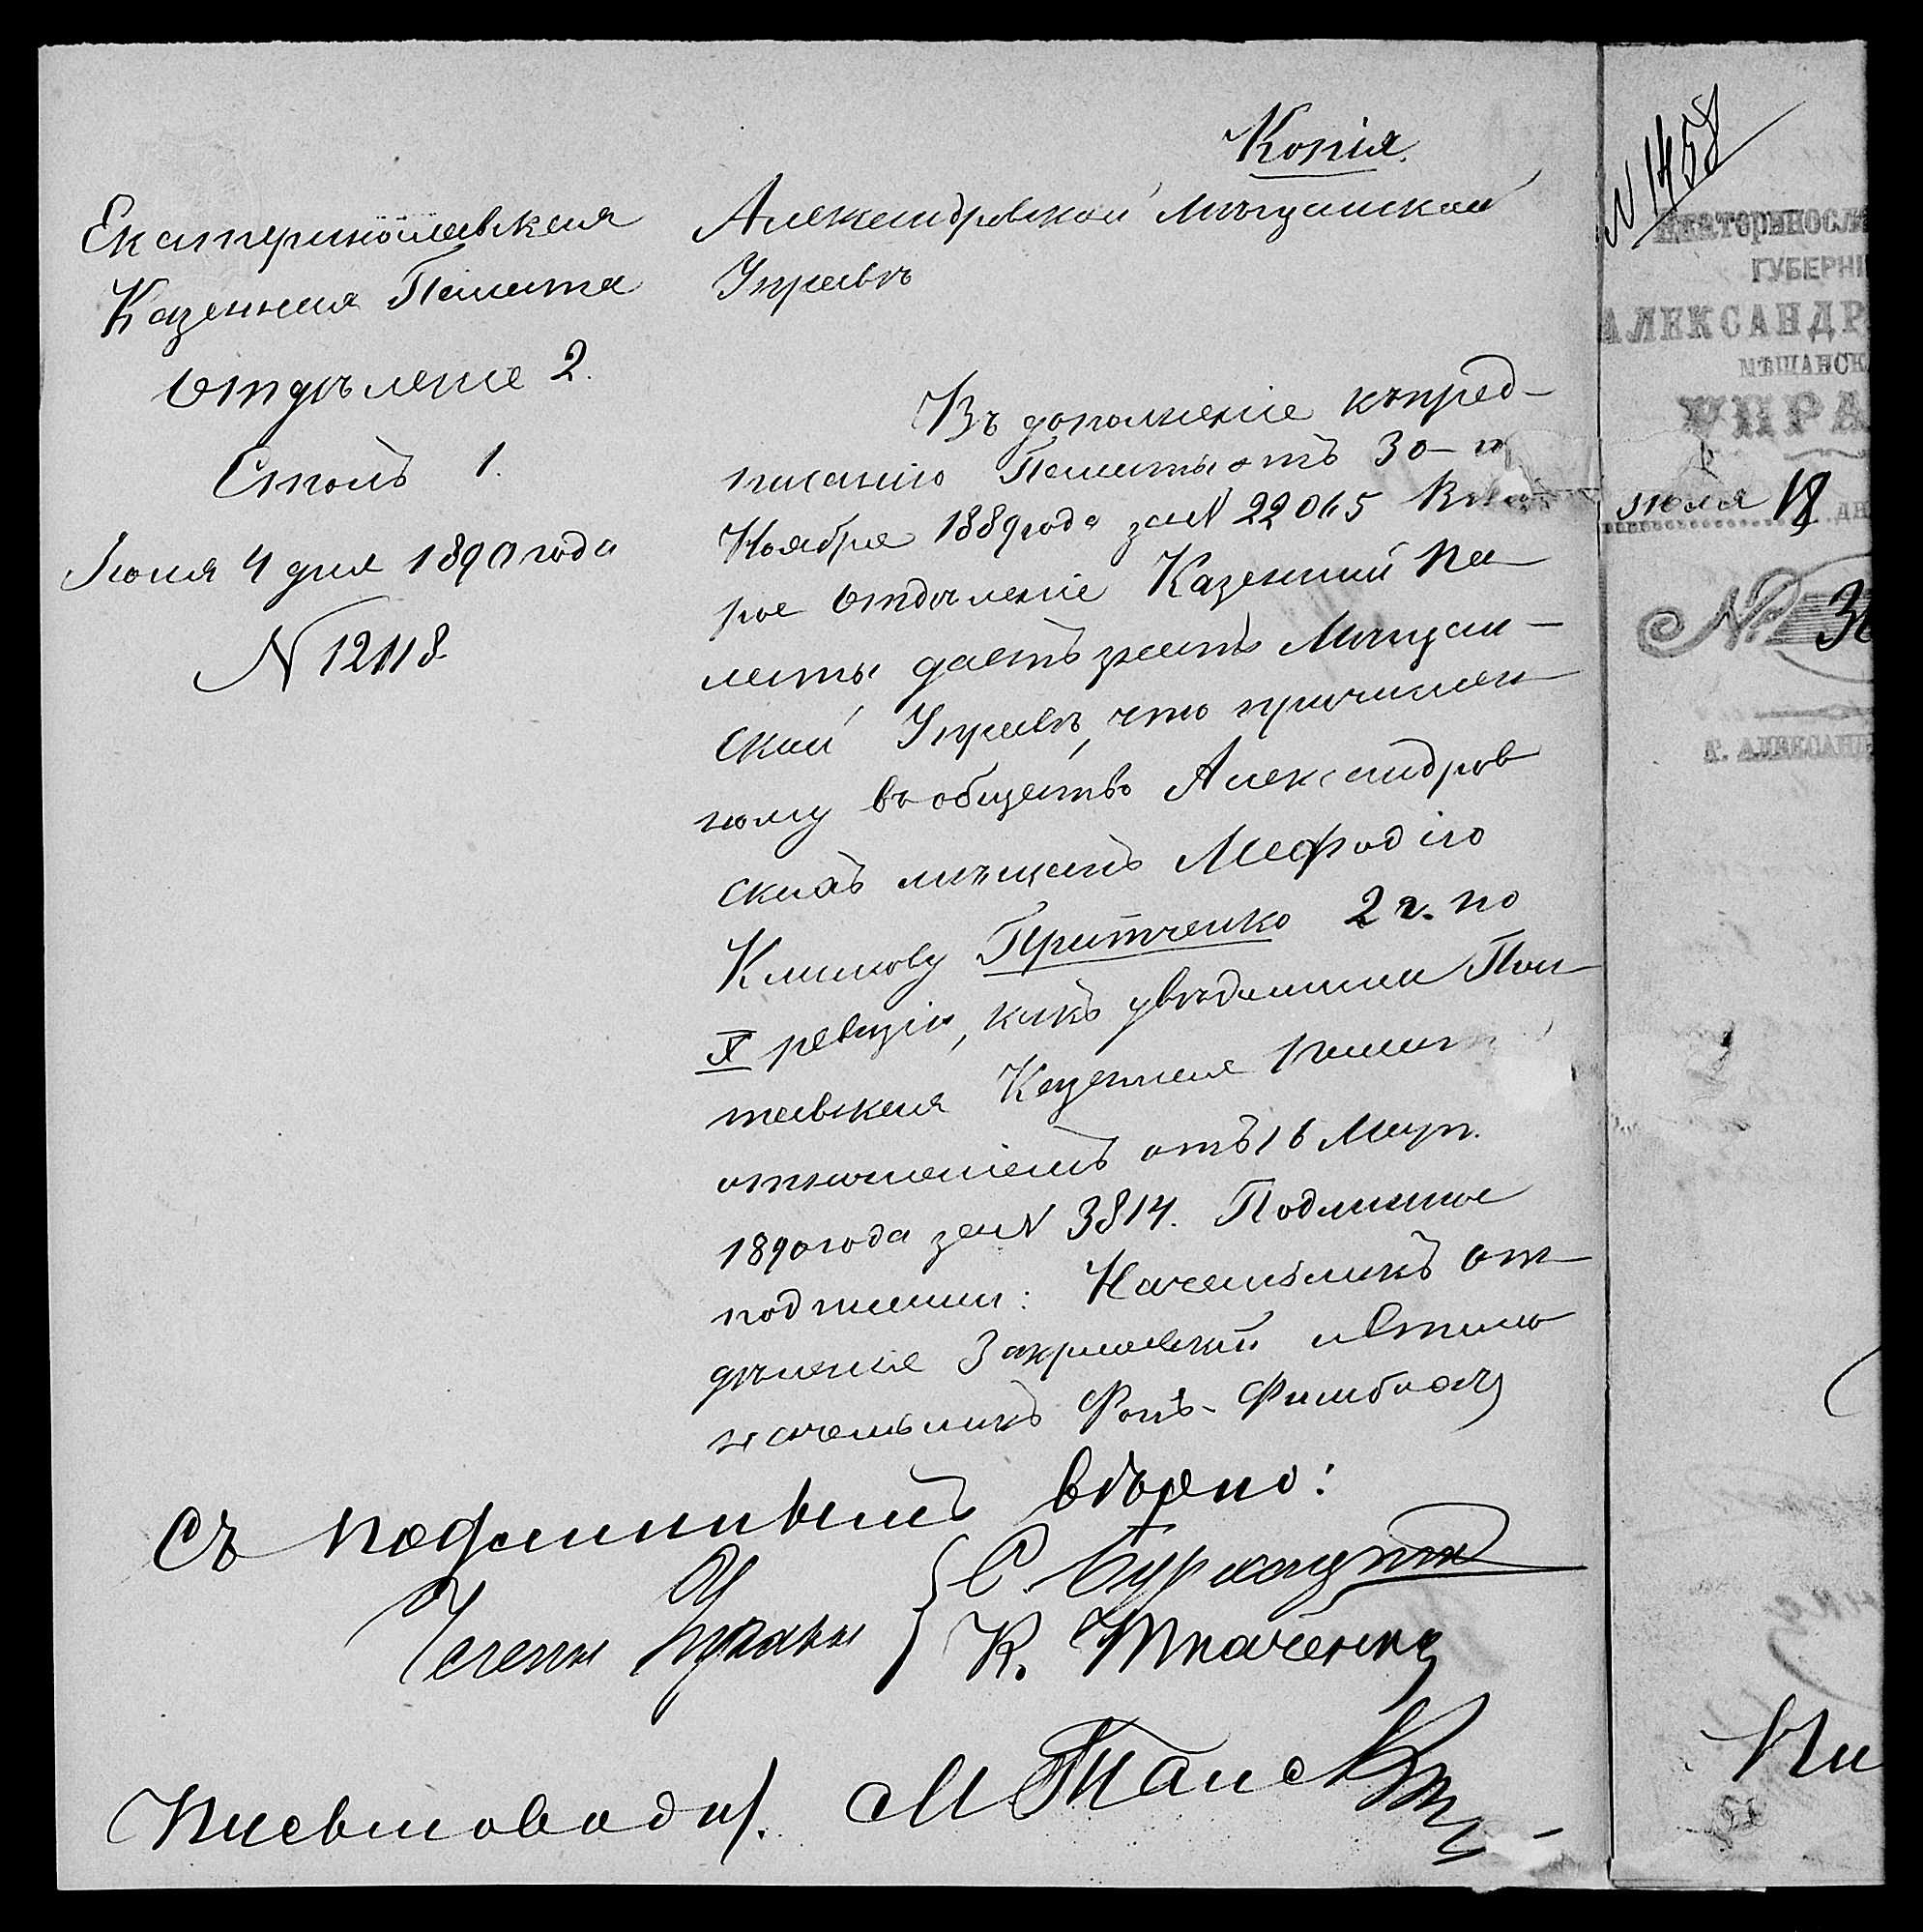 Копія.
Екатеринославская
Казенная Палата
Отдѣленіе 2.
Столъ 1.
Іюня 4 дня 1890 года
N 12118
Александровской мѣщанской
Управѣ
Въ дополненіе къ пред-
писанію Палаты отъ 30-го
Ноября 1889 года за N 22065 Вто
рое Отдѣленіе Казенной Па
латы даетъ знать Мѣщан-
ской Управѣ, что причислен
ному въ общество Александров
скихъ мѣщанъ Мефодію
Климову Притченко 2 г. по
X ревизіи, какъ увѣдомила Пол
тавская Казенная Палата
отношеніемъ отъ 16 Марта
1890 года за N 3814. Подлинное
подписали: Начальникъ От
дѣленія Закржевскій и Столо
начальникъ Фонъ-
Съ подлиннымъ вѣрно:
Члены Управы
С.
К. Ткаченко
Письмовод. М.
N 1458
Екатериносла
ГУБЕРНІ
АЛЕКСАНДР
МѢЩАНСК
УПРА
Іюля 18 дн
№ 3
Г. АЛЕКСАНД
Пи